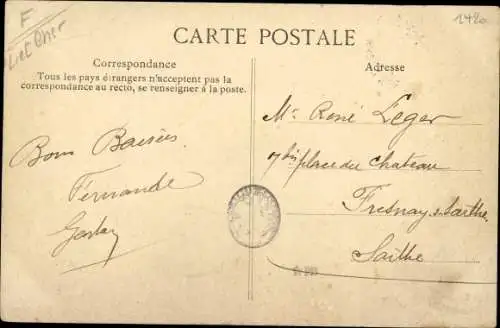 F
Loiret Cher
1480
CARTE POSTALE
Correspondance
Tous les pays étrangers n'acceptent pas la
correspondance au recto, se renseigner à la poste.
Adresse
Mr René Leger
7 bis place du Chateau
Fresnay s. Sarthe
Sarthe
Bons Baisers
Fernande
Gaston